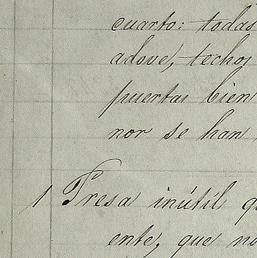 cuarto: todas
adove, techos
puertas bien
nor se han
1 Presa inútil q
ente, que no